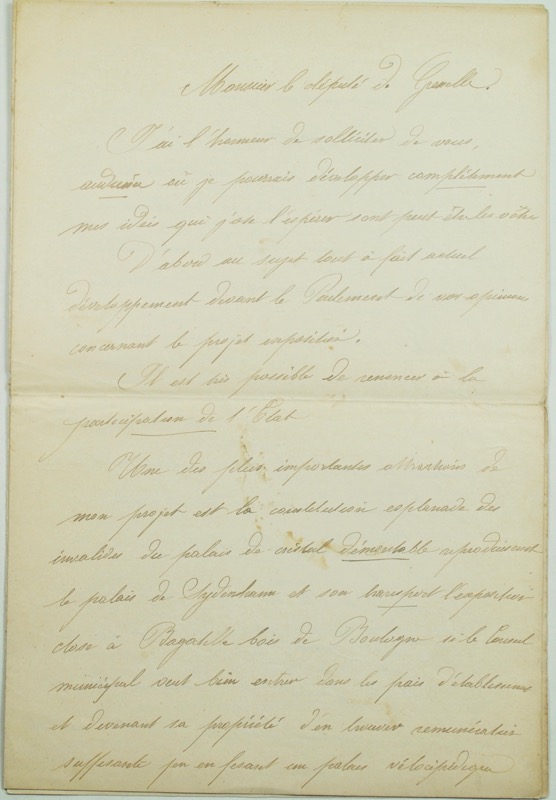 Monsieur le député de Grenelle.
J'ai l'honneur de solliciter de vous,
audience où je pourrais développer complètement
mes idées qui j'ose l'espérer sont peut être les vôtres
D'abord au sujet tout à fait actuel
développement devant le Parlement de vos opinions
concernant le projet exposition.
Il est très possible de renoncer à la
participation de l'Etat
Une des plus importantes attractions de
mon projet est la constitution esplanade des
invalides du palais de cristal démontable reproduisant
le palais de Sydenham et son transport l'exposition
close à Bagatelle bois de Boulogne si le Conseil
municipal veut bien entrer dans les frais d'établissement
et devenant sa propriété d'en trouver rémunération
suffisante en en fesant un palais vélocipédique